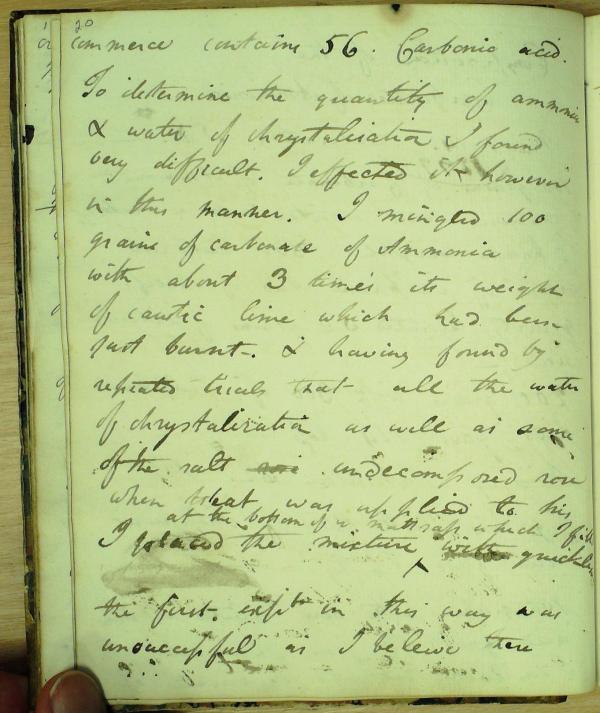 20
commerce contains 56. Carbonic acid.
To determine the quantity of ammonia
& water of chrystalisation I found
very difficult. I effected it however
in this manner. I mingled 100
grains of carbonate of Ammonia
with about 3 times its weight
of caustic lime which had been
just burnt. & having found by
repeated trials that all the water
of chrystalization as well as some
of the salt undecomposed rose
when heat was applied to his
at the bottom of a mattrass which I fill
I placed the mixture with quicklime
the first. expt in this way was
unsuccessful as I beleive there